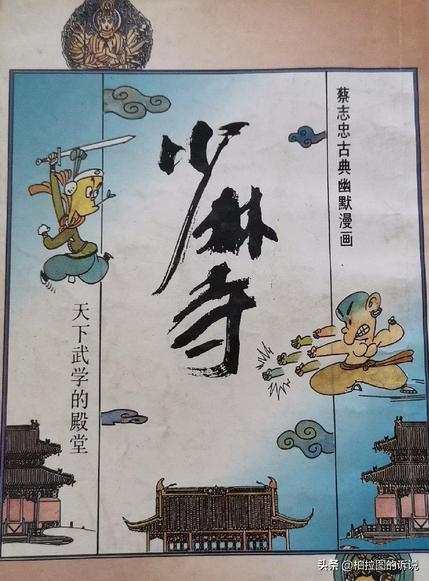 蔡志忠古典幽默漫画
少林寺
天下武学的殿堂
头条@柏拉图的诉说